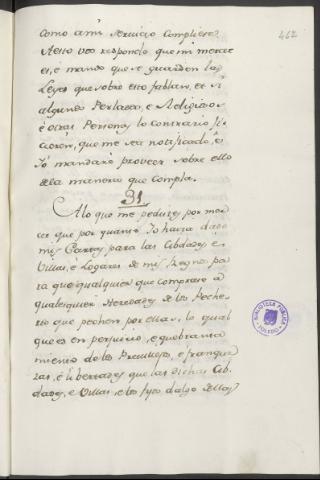 462
como a mi servicio compliere
A esto vos respondo que mi merced
es, è mando que se guarden las
Leyes que sobre esto fablan, et si
algunos Perlados, e Religiosos
è otras Personas lo contrario fi
cieron, que me sea notificado, è
Yo mandarè proveer sobre ello
de la manera que cumpla.
31
A lo que me pedistes por mer
ced que por quanto Yo havia dado
mis Cartas para las Cibdades, e
Villas, è Logares de mis Regnos, pa
ra que qualquier que comprase
qualesquier Heredades de los Peche
ros que pechen por ellas, lo qual
que es en perjuicio, e quebranta
miento de los Previllejos, e franque
zas, è libertades que las dichas Cib
dades, e Villas, e los fijos dalgo dellas
BIBLIOTECA PUBLICA
TOLEDO